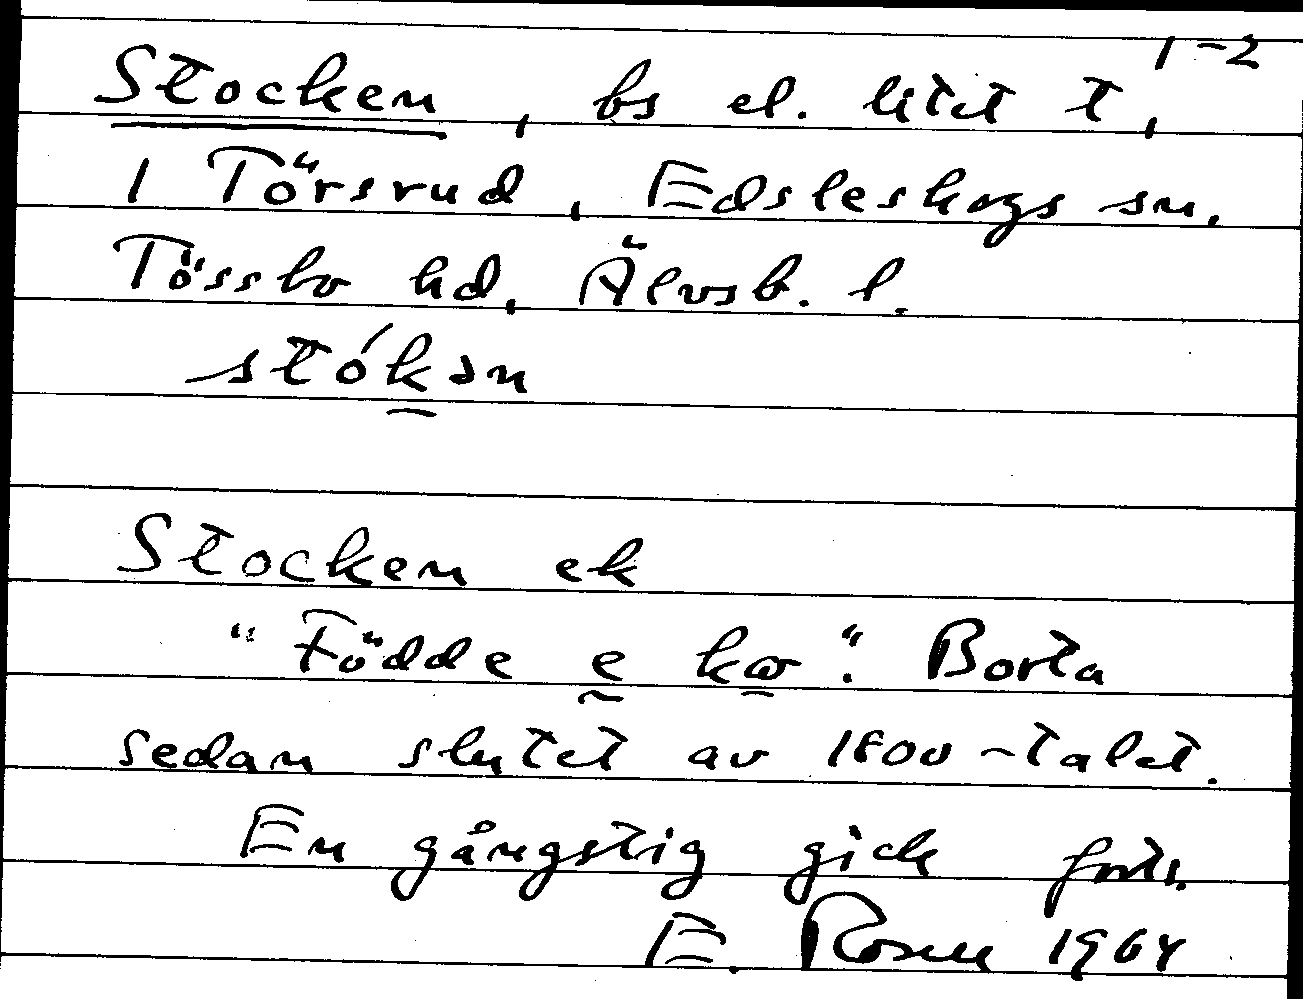 1-2
Stocken, bs el. litet t,
i Törsrud, Edsleskogs sn,
Tössbo hd, Älvsb. l.
stókən
Stocken ek
"Födde e kœ". Borta
sedan slutet av 1800-talet.
En gångstig gick forts.
E. Rosell 1964